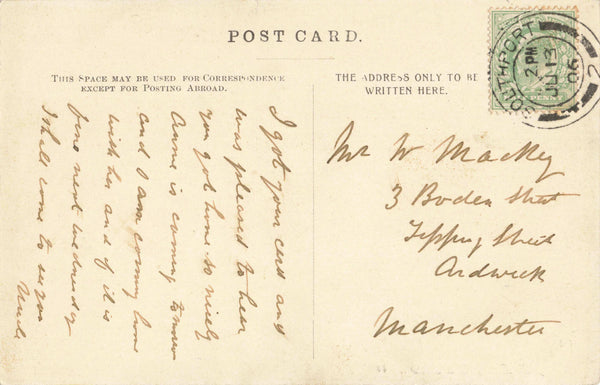 POST CARD.
THIS SPACE MAY BE USED FOR CORRESPONDENCE
EXCEPT FOR POSTING ABROAD.
I got your card and
was pleased to hear
you got home so nicely
Annie is coming
and I am coming home
with her and if it is
fine next Wednesday
I shall come to
THE ADDRESS ONLY TO BE
WRITTEN HERE.
SOUTHPORT
2 PM
JU 13
06
2
PENNY
Mr W Mackey
3 Boden Street
Tipping Street
Ardwick
Manchester